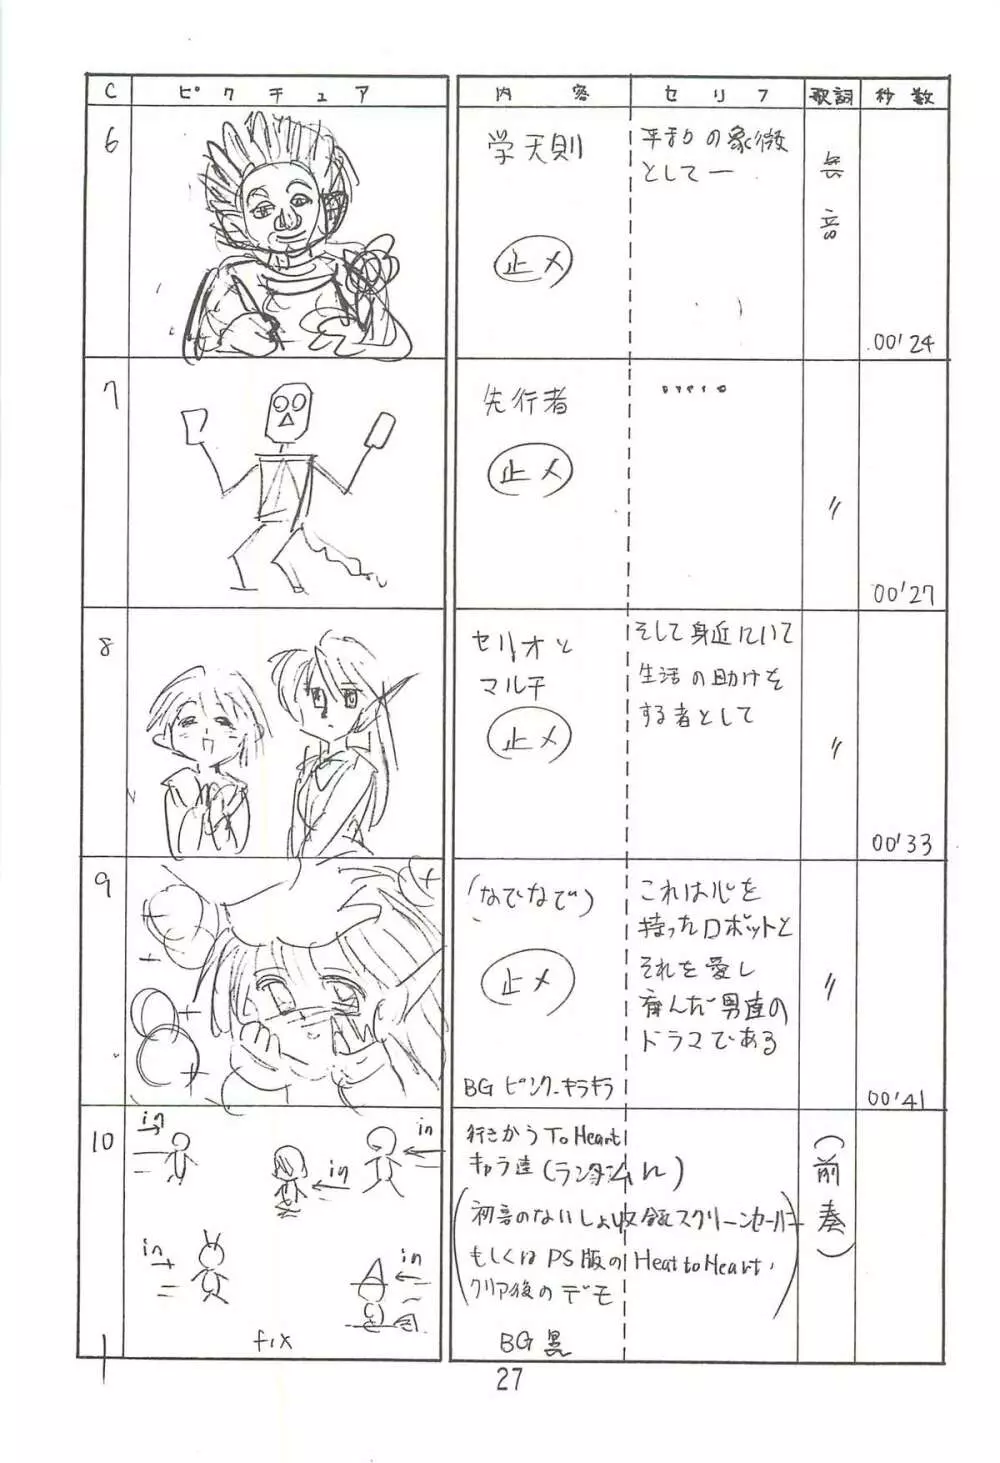 C ピクチュア 内容 セリフ 歌詞 秒数
6
学天則
止メ
平和の象徴
として―
無音
00'24
7
先行者
止メ
・・・・・
〃
00'27
8
セリオと
マルチ
止メ
そして身近にいて
生活の助けを
する者として
〃
00'33
9
(なでなで)
止メ
BG ピンク・キラキラ
これは心を
持ったロボットと
それを愛し
育んだ男達の
ドラマである
〃
00'41
10
in
in
in
in
in
fix
行きかうToHeart
キャラ達(ランダムに)
(初音のないしょ収録スクリーンセーバー
もしくはPS版のHeattoHeart,
クリア後のデモ)
BG 黒
(前奏)
27